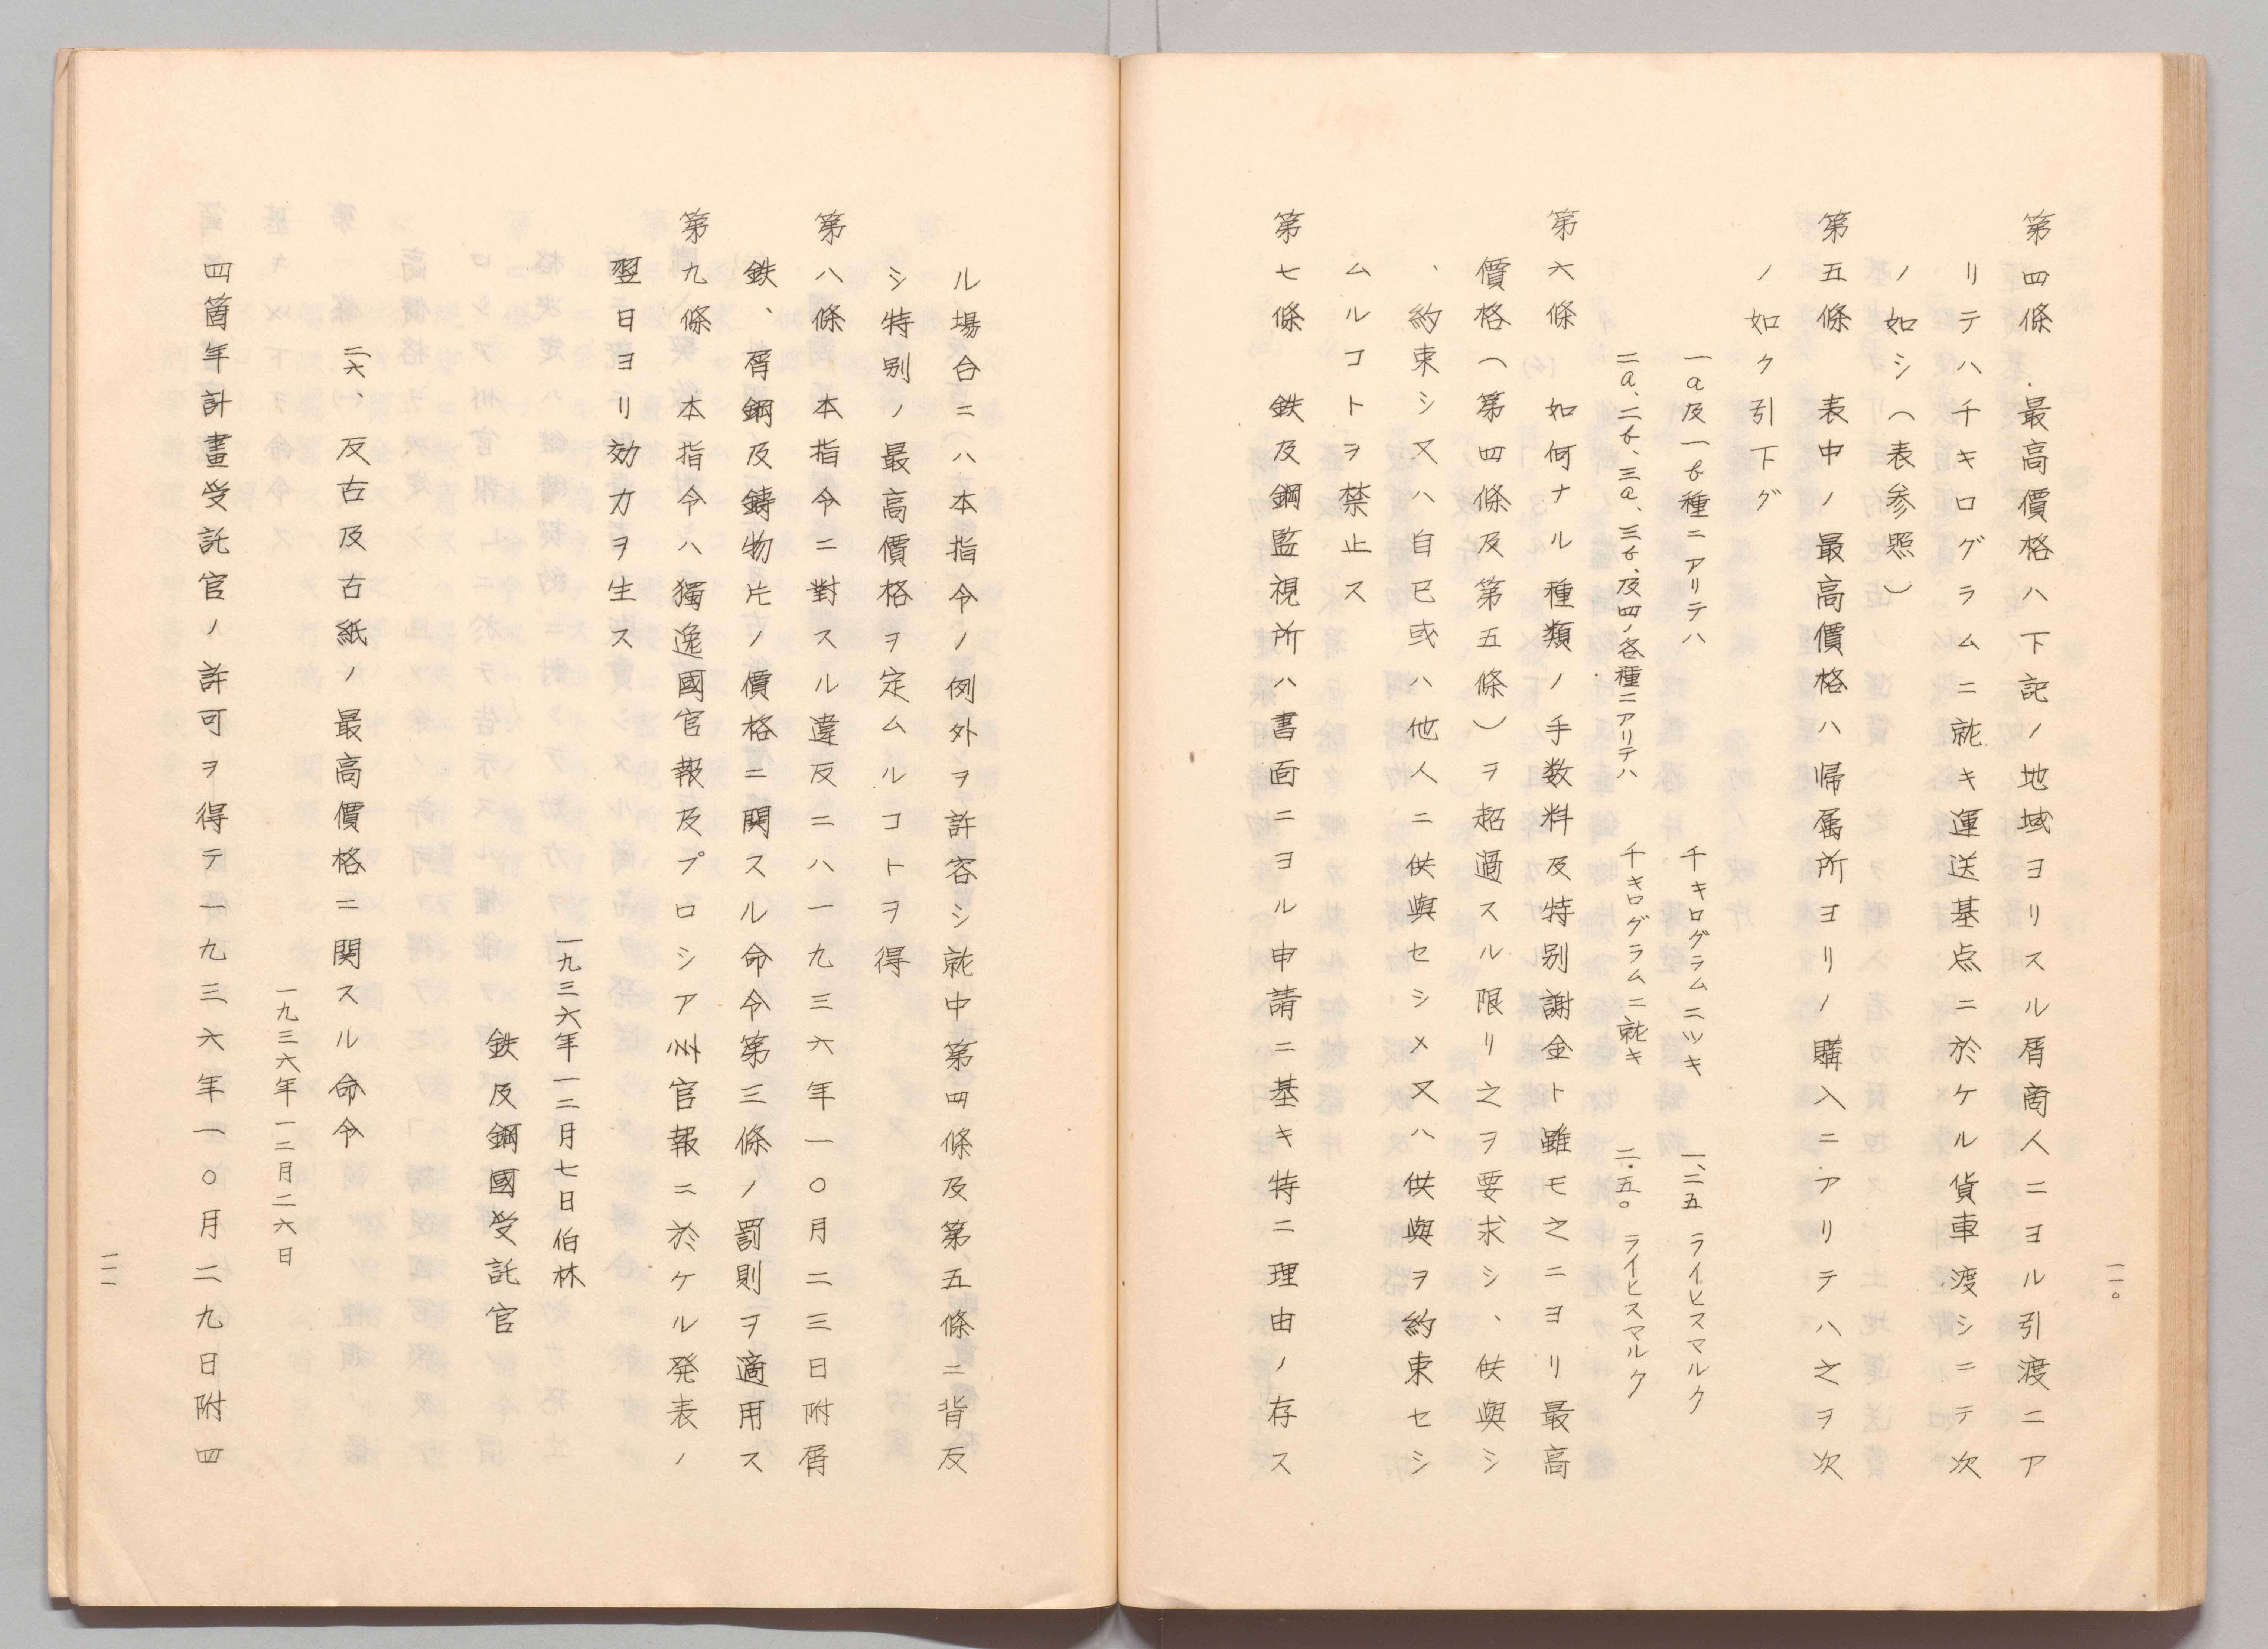 一一〇
第四條　最高價格ハ下記ノ地域ヨリスル屑商人ニヨル引渡ニア
リテハ千キログラムニ就キ運送基点ニ於ケル貨車渡シニテ次
ノ如シ（表参照）
第五條　表中ノ最高價格ハ帰属所ヨリノ購入ニアリテハ之ヲ次
ノ如ク引下グ
一a及一b種ニアリテハ　千キログラムニツキ　一、二五　ライヒスマルク
二a、二b、三a、三b、及四ノ各種ニアリテハ　千キログラムニ就キ　二・五〇　ライヒスマルク
第六條　如何ナル種類ノ手数料及特別謝金ト雖モ之ニヨリ最高
價格（第四條及第五條）ヲ超過スル限リ之ヲ要求シ、供與シ
、約束シ又ハ自己或ハ他人ニ供與セシメ又ハ供與ヲ約束セシ
ムルコトヲ禁止ス
第七條　鉄及鋼監視所ハ書面ニヨル申請ニ基キ特ニ理由ノ存ス
ル場合ニハ本指令ノ例外ヲ許容シ就中第四條及第五條ニ背反
シ特別ノ最高價格ヲ定ムルコトヲ得
第八條　本指令ニ對スル違反ニハ一九三六年一〇月二三日附屑
鉄、屑鋼及鋳物片ノ價格ニ関スル命令第三條ノ罰則ヲ適用ス
第九條　本指令ハ獨逸國官報及プロシア州官報ニ於ケル発表ノ
翌日ヨリ効力ヲ生ス
一九三六年一二月七日伯林
鉄及鋼國受託官
二六、反古及古紙ノ最高價格ニ関スル命令
一九三六年一二月二六日
四箇年計畫受託官ノ許可ヲ得テ一九三六年一〇月二九日附四
一一一